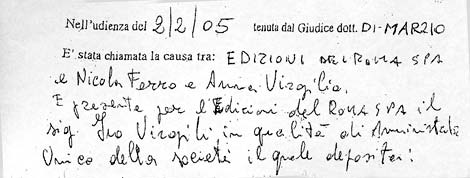 Nell'udienza del 2/2/05 tenuta dal Giudice dott. DI-MARZIO
E' stata chiamata la causa tra: EDIZIONI DEL ROMA SPA
e Nicola Ferro e Anna Virgilio.
E presente per l'Edizioni del ROMA SPA il
sig. Ivo Virgili, in qualità di Amministrat
Unico della società il quale deposita: